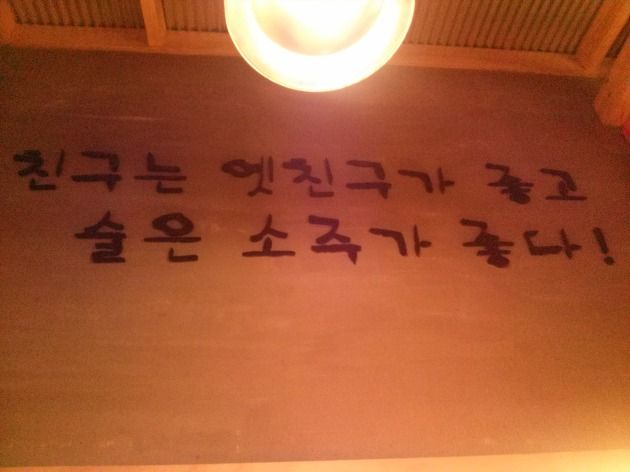 친구는 옛친구가 좋고
술은 소주가 좋다!